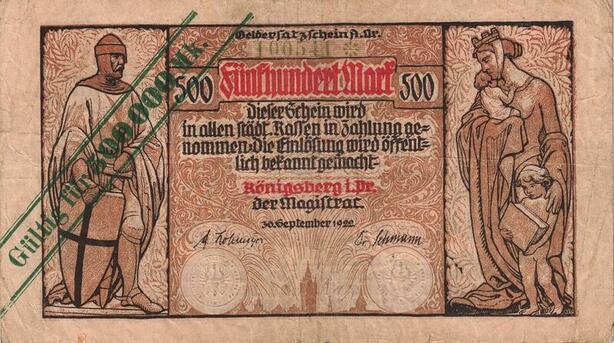 Geldersatzschein A. Nr.
500 Fünfhundert Mark 500
Dieser Schein wird
in allen städt. Kassen in Zahlung ge-
nommen. Die Einlösung wird öffent-
lich bekannt gemacht.
Königsberg i. Pr.
der Magistrat.
30. September 1922
Gültig für 500000 Mk.